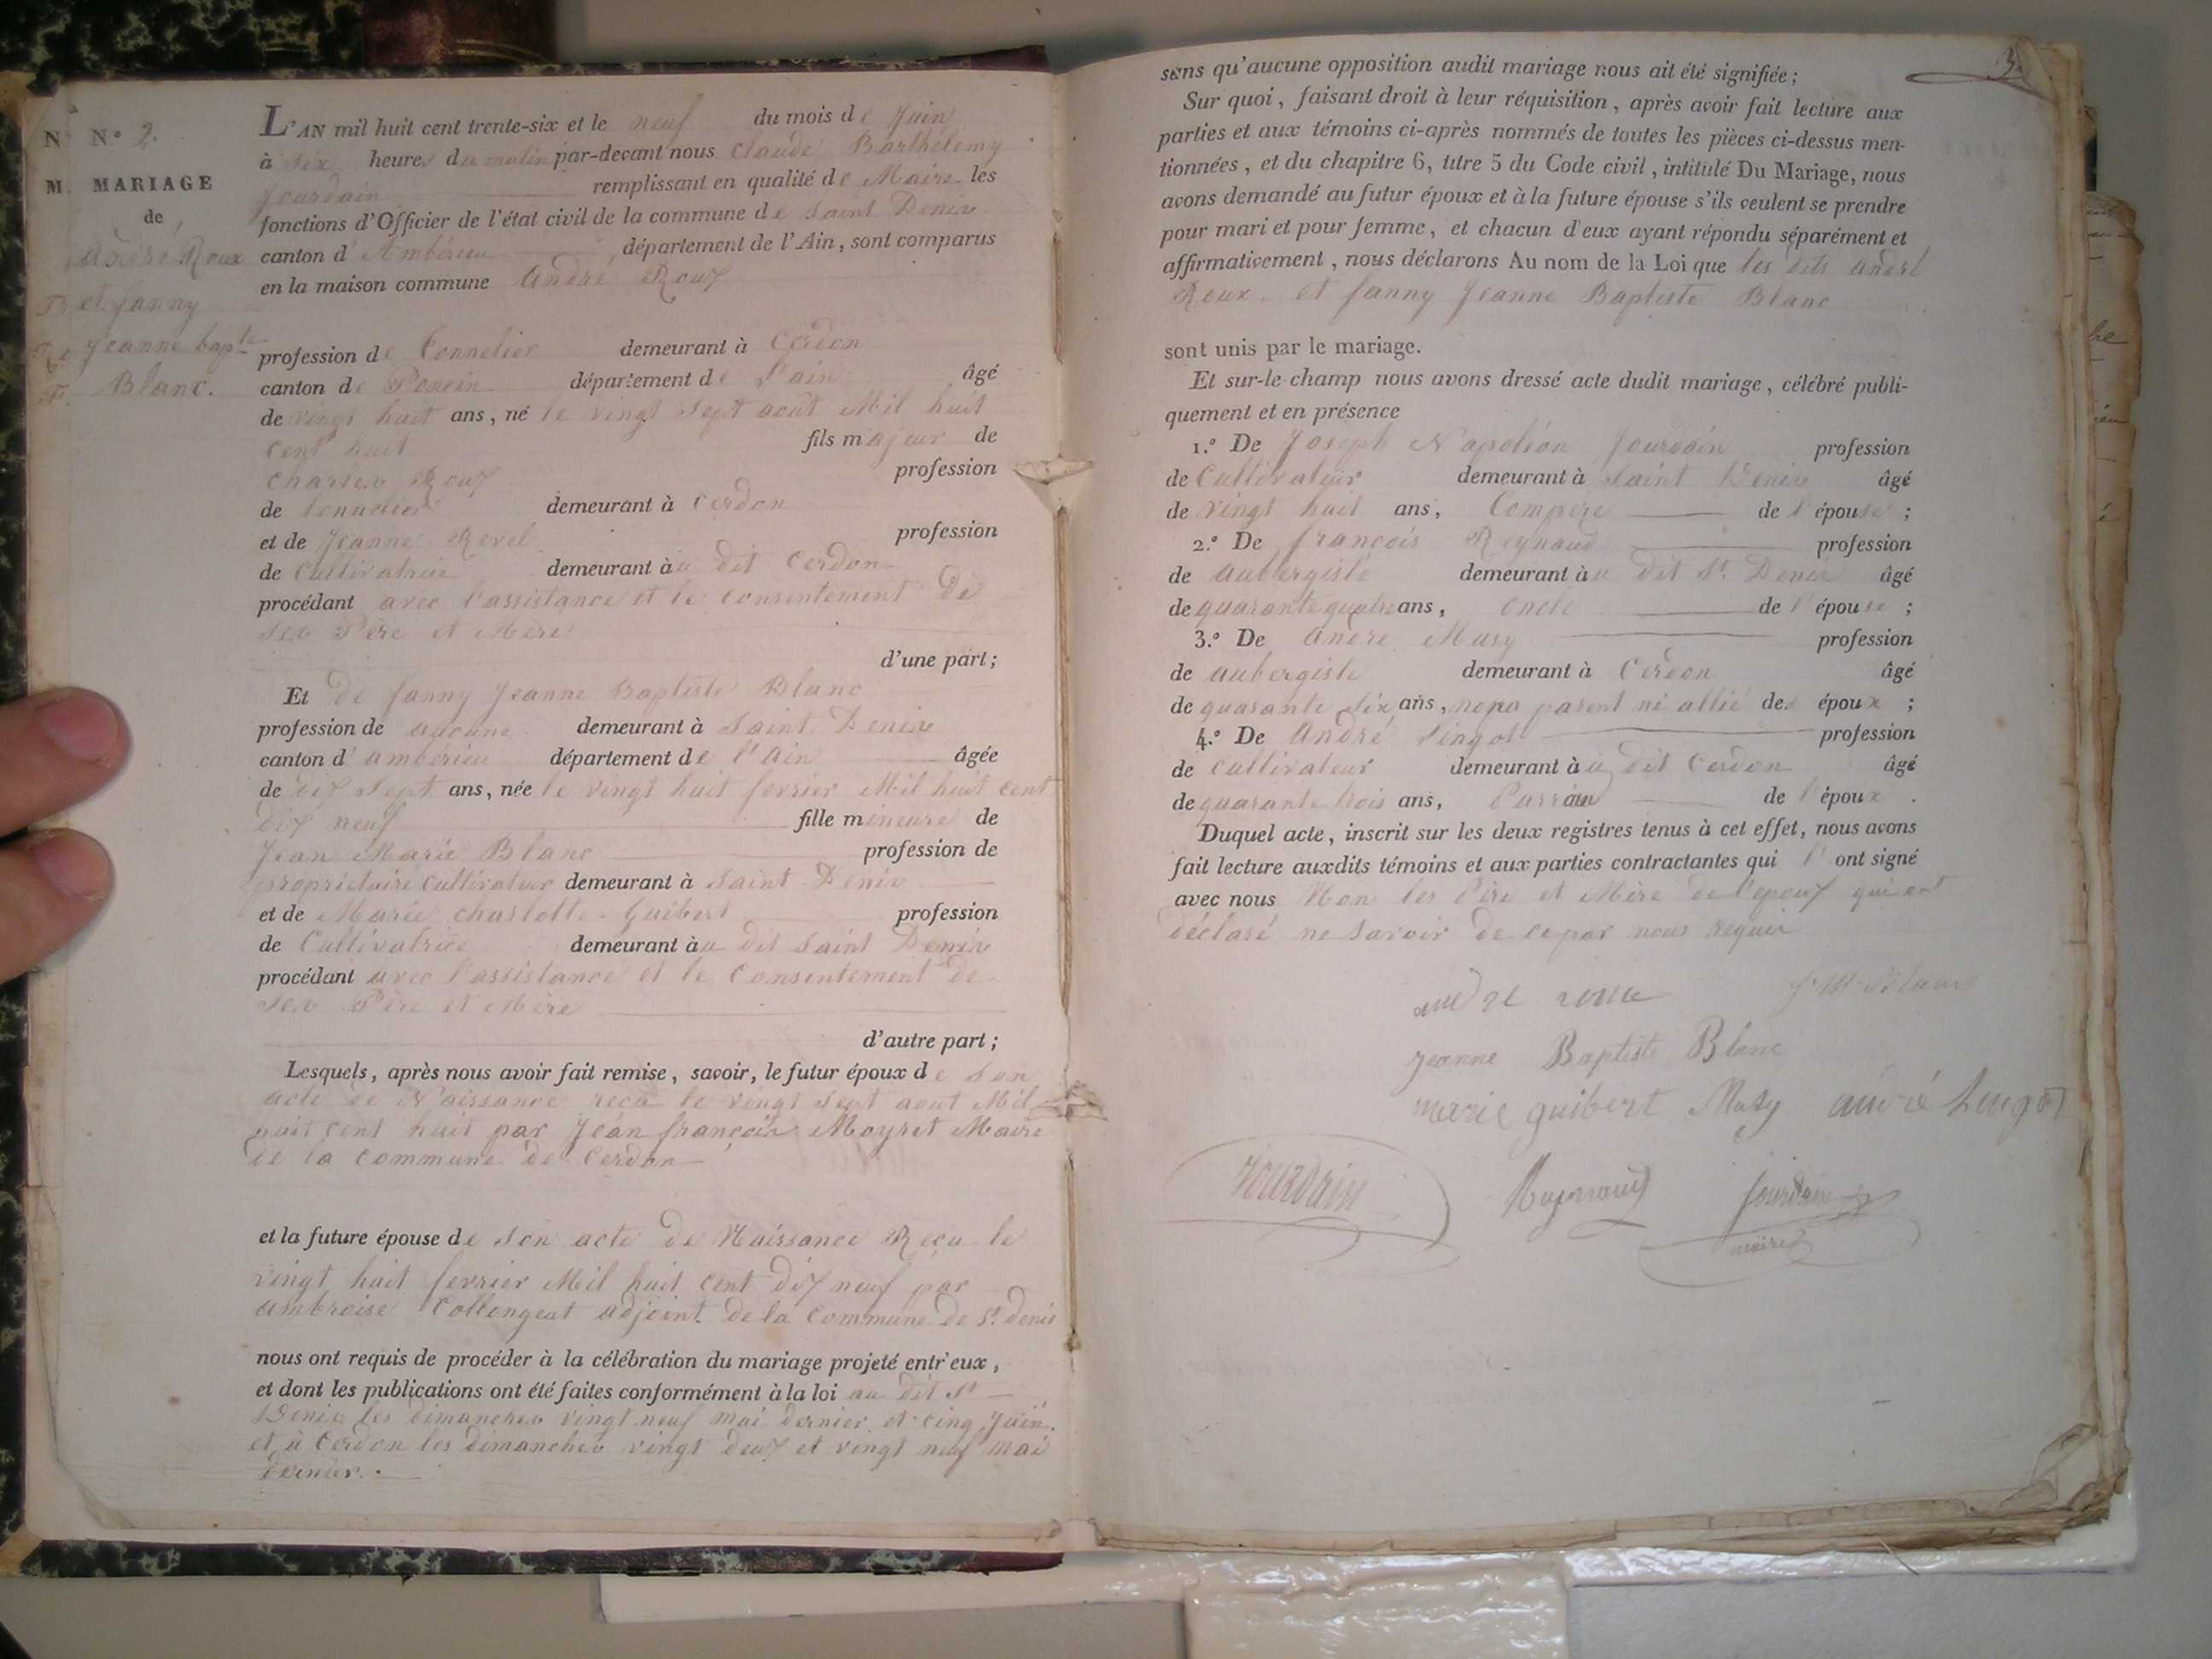 N° 2.
MARIAGE
de
André Roux
et fanny
Jeanne bapte
Blanc.
L'AN mil huit cent trente-six et le neuf du mois de Juin
à Six heures du matin par-devant nous Claude Barthélemy
Jourdain remplissant en qualité de Maire les
fonctions d'Officier de l'état civil de la commune de Saint Denis
canton d'Ambérieu département de l'Ain, sont comparus
en la maison commune André Roux
profession de Tonnelier demeurant à Cerdon
canton de Poncin département de l'ain âgé
de vingt huit ans, né le vingt Sept août Mil huit
cent huit fils majeur de
Charles Roux profession
de tonnelier demeurant à Cerdon
et de Jeanne Revel profession
de Cultivatrice demeurant àu dit Cerdon
procédant avec l'assistance et le consentement De
Ses Père et Mère
d'une part;
Et de fanny Jeanne Baptiste Blanc
profession de aucune demeurant à Saint Denis
canton d'ambérieu département de l'Ain âgée
de dix Sept ans, née le vingt huit fevrier Mil huit cent
dix neuf fille mineure de
Jean Marie Blanc profession de
propriétaire Cultivateur demeurant à Saint Denis
et de Marie Charlotte Guibert profession
de Cultivatrice demeurant àu dit Saint Denis
procédant avec l'assistance et le Consentement de
Ses Père et Mère
d'autre part;
Lesquels, après nous avoir fait remise, savoir, le futur époux de Son
acte de Naissance reçu le vingt Sept aout Mil
huit cent huit par Jean françois Moyret Maire
de la Commune de Cerdon
et la future épouse de Son acte de Naissance Reçu le
vingt huit fevrier Mil huit cent dix neuf par
ambroise Collongeat adjoint de la Commune de St. denis
nous ont requis de procéder à la célébration du mariage projeté entr'eux,
et dont les publications ont été faites conformément à la loi au dit St
Denis les dimanches vingt neuf mai dernier et cinq Juin
et à Cerdon les dimanches vingt deux et vingt neuf mai
dernier.
3.
sans qu'aucune opposition audit mariage nous ait été signifiée;
Sur quoi, faisant droit à leur réquisition, après avoir fait lecture aux
parties et aux témoins ci-après nommés de toutes les pièces ci-dessus men-
tionnées, et du chapitre 6, titre 5 du Code civil, intitulé Du Mariage, nous
avons demandé au futur époux et à la future épouse s'ils veulent se prendre
pour mari et pour femme, et chacun d'eux ayant répondu séparément et
affirmativement, nous déclarons Au nom de la Loi que les dits andré
Roux et fanny Jeanne Baptiste Blanc
sont unis par le mariage.
Et sur-le-champ nous avons dressé acte dudit mariage, célébré publi-
quement et en présence
1.° De Joseph Napoléon Jourdain profession
de Cultivateur demeurant à Saint Denis âgé
de vingt huit ans, Compère de l'épouse;
2.° De françois Reynaud profession
de aubergiste demeurant àu dit St. Denis âgé
de quarante quatre ans, oncle de l'épouse;
3.° De andré Musy profession
de aubergiste demeurant à Cerdon âgé
de quarante six ans, parent ni allié des époux;
4.° De André Lingot profession
de cultivateur demeurant àu dit Cerdon âgé
de quarante trois ans, Parrain de l'époux.
Duquel acte, inscrit sur les deux registres tenus à cet effet, nous avons
fait lecture auxdits témoins et aux parties contractantes qui l'ont signé
avec nous Non les Père et Mère de l'époux qui ont
déclaré ne Savoir de ce par nous requis
andre roux J. M. Blanc
jeanne Baptiste Blanc
marie guibert Musy andré Lingot
Jourdain Reynaud Jourdain
maire